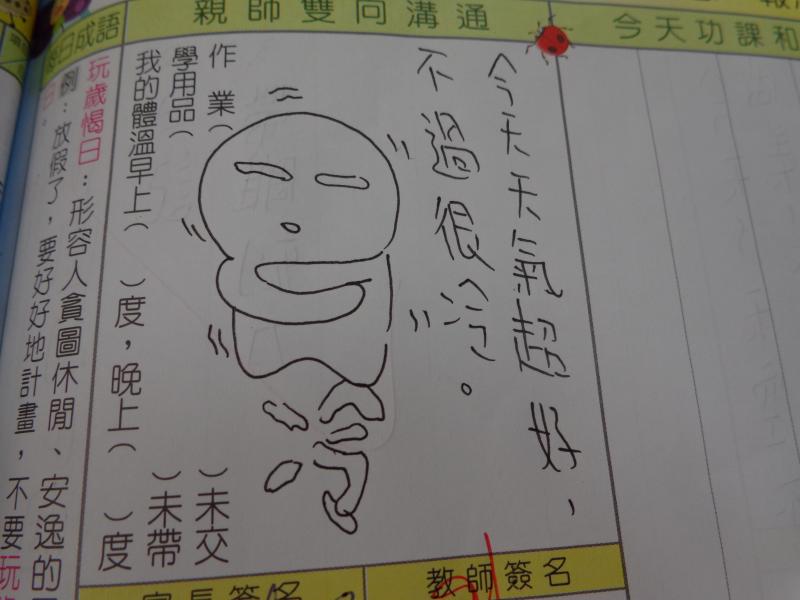 親師雙向溝通
今天功課和
今天天氣超好，
不過很冷。
作業（　）未交
學用品（　）未帶
我的體溫早上（　）度，晚上（　）度
冷
日成語
玩歲愒日：形容人貪圖休閒、安逸的
例：放假了，要好好地計畫，不要玩
教師簽名
家長簽名